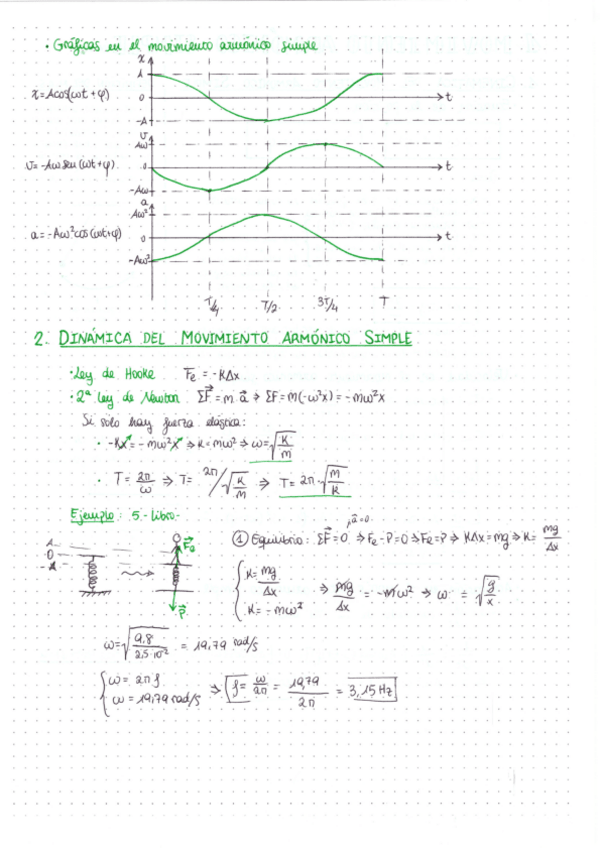 · Gráficas en el movimiento armónico simple
x
A
x = Acos(ωt + φ)
0
t
-A
v
Aω
v = -Aω sen (ωt + φ)
0
t
-Aω
a
Aω²
a = -Aω²cos(ωt+φ)
0
t
-Aω²
T/4 T/2 3T/4 T
2. DINÁMICA DEL MOVIMIENTO ARMÓNICO SIMPLE
· Ley de Hooke F⃗e = -KΔx
· 2ª Ley de Newton ΣF⃗ = m · a⃗ ⇒ ΣF = m(-ω²x) = -mω²x
Si sólo hay fuerza elástica:
· -Kx = -mω²x ⇒ K = mω² ⇒ ω = √(K/m)
· T = 2π/ω ⇒ T = 2π/√(K/m) ⇒ T = 2π · √(m/K)
Ejemplo: 5 - libro -
a⃗=0
① Equilibrio: ΣF⃗ = 0 ⇒ Fe - P = 0 ⇒ Fe = P ⇒ KΔx = mg ⇒ K = mg/Δx
A
0
-A
F⃗e
P⃗
K = mg/Δx
K = -mω²
⇒ mg/Δx = -mω² ⇒ ω = √(g/x)
ω = √(9,8/2,5·10⁻²) = 19,79 rad/s
ω = 2πf
ω = 19,79 rad/s
⇒ f = ω/2π = 19,79/2π = 3,15 Hz